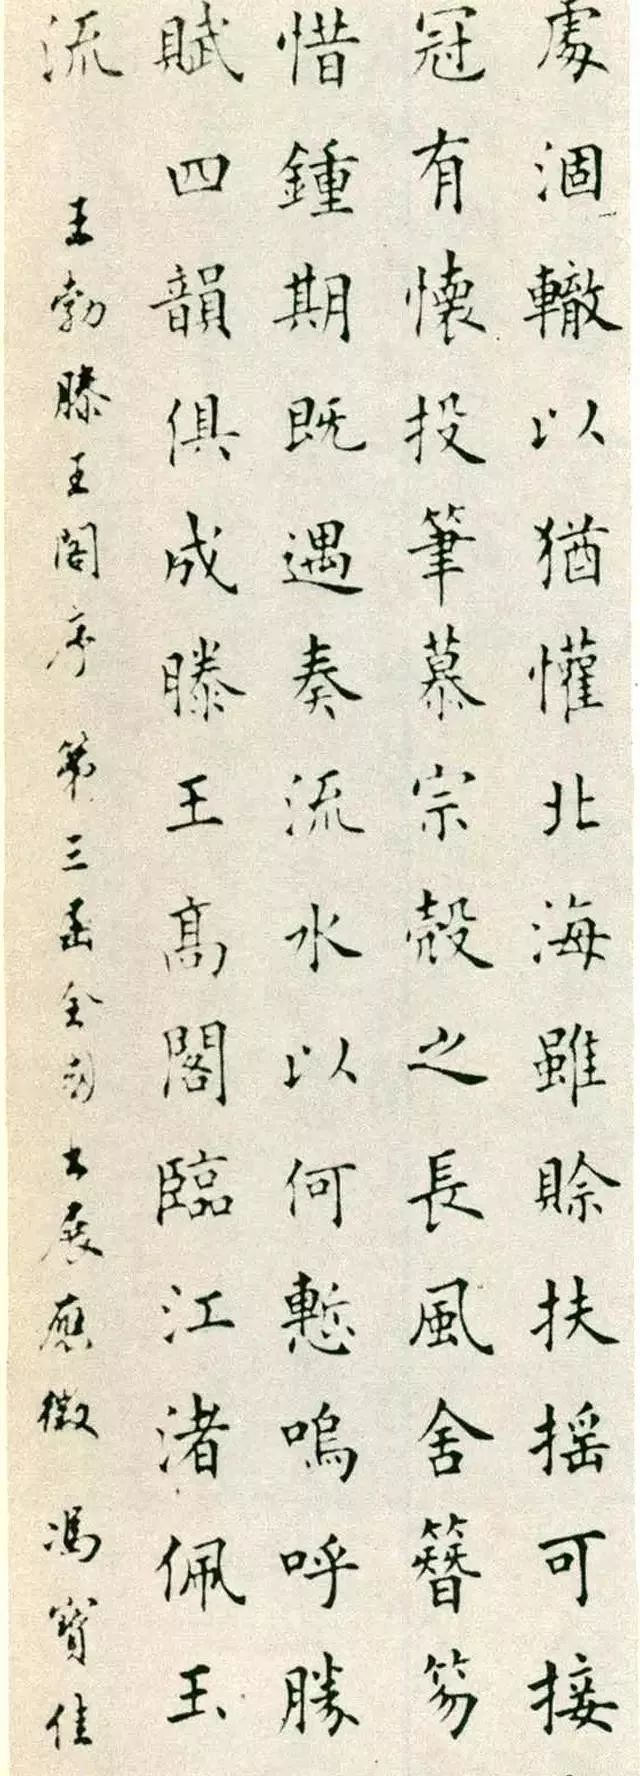 處涸轍以猶懽北海雖賒扶摇可接
冠有懷投筆慕宗殻之長風舍簪笏
惜鍾期既遇奏流水以何慙嗚呼勝
賦四韻俱成滕王髙閣臨江渚佩玉
流 王勃滕王阁序 第三届全国书展應徵 馮寶佳